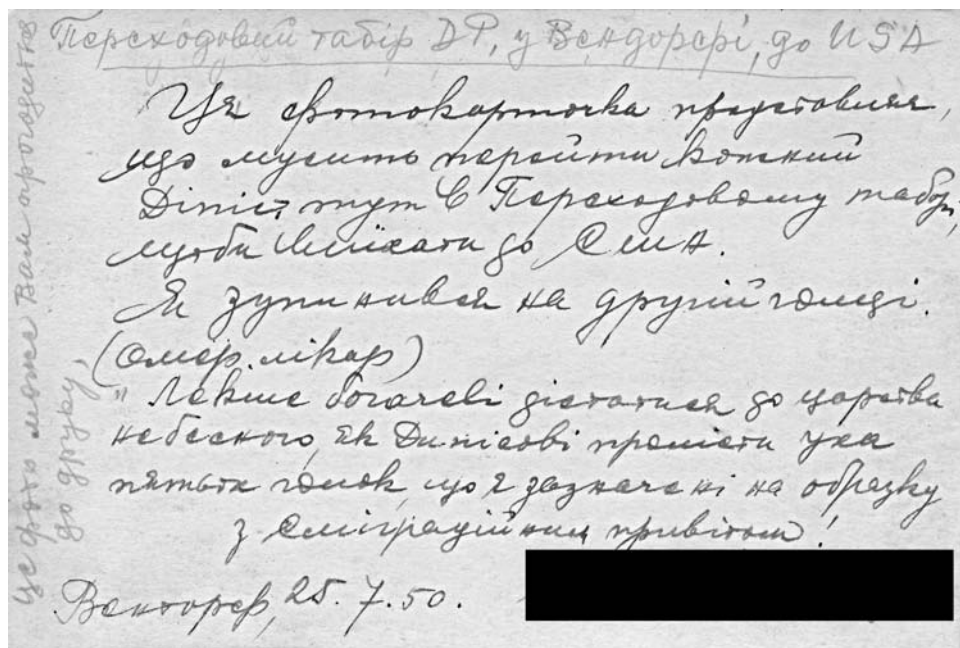 Переходовий табір DP, у Вендорфі, до USA
Ця фотокарточка представляє,
що мусить перейти кожний
Діпіст тут в Переходовому таборі,
щоби виїхати до США.
Я зупинився на другій голці.
(амер. лікар)
"Лекше богачеві дістатися до царства
небесного, як Дипістові пролісти
пятьох голок, що є зазначені на образку
з еміграційним привітом!
Венторф, 25. 7. 50.
Це фото може Вам пригодитися
до друку,